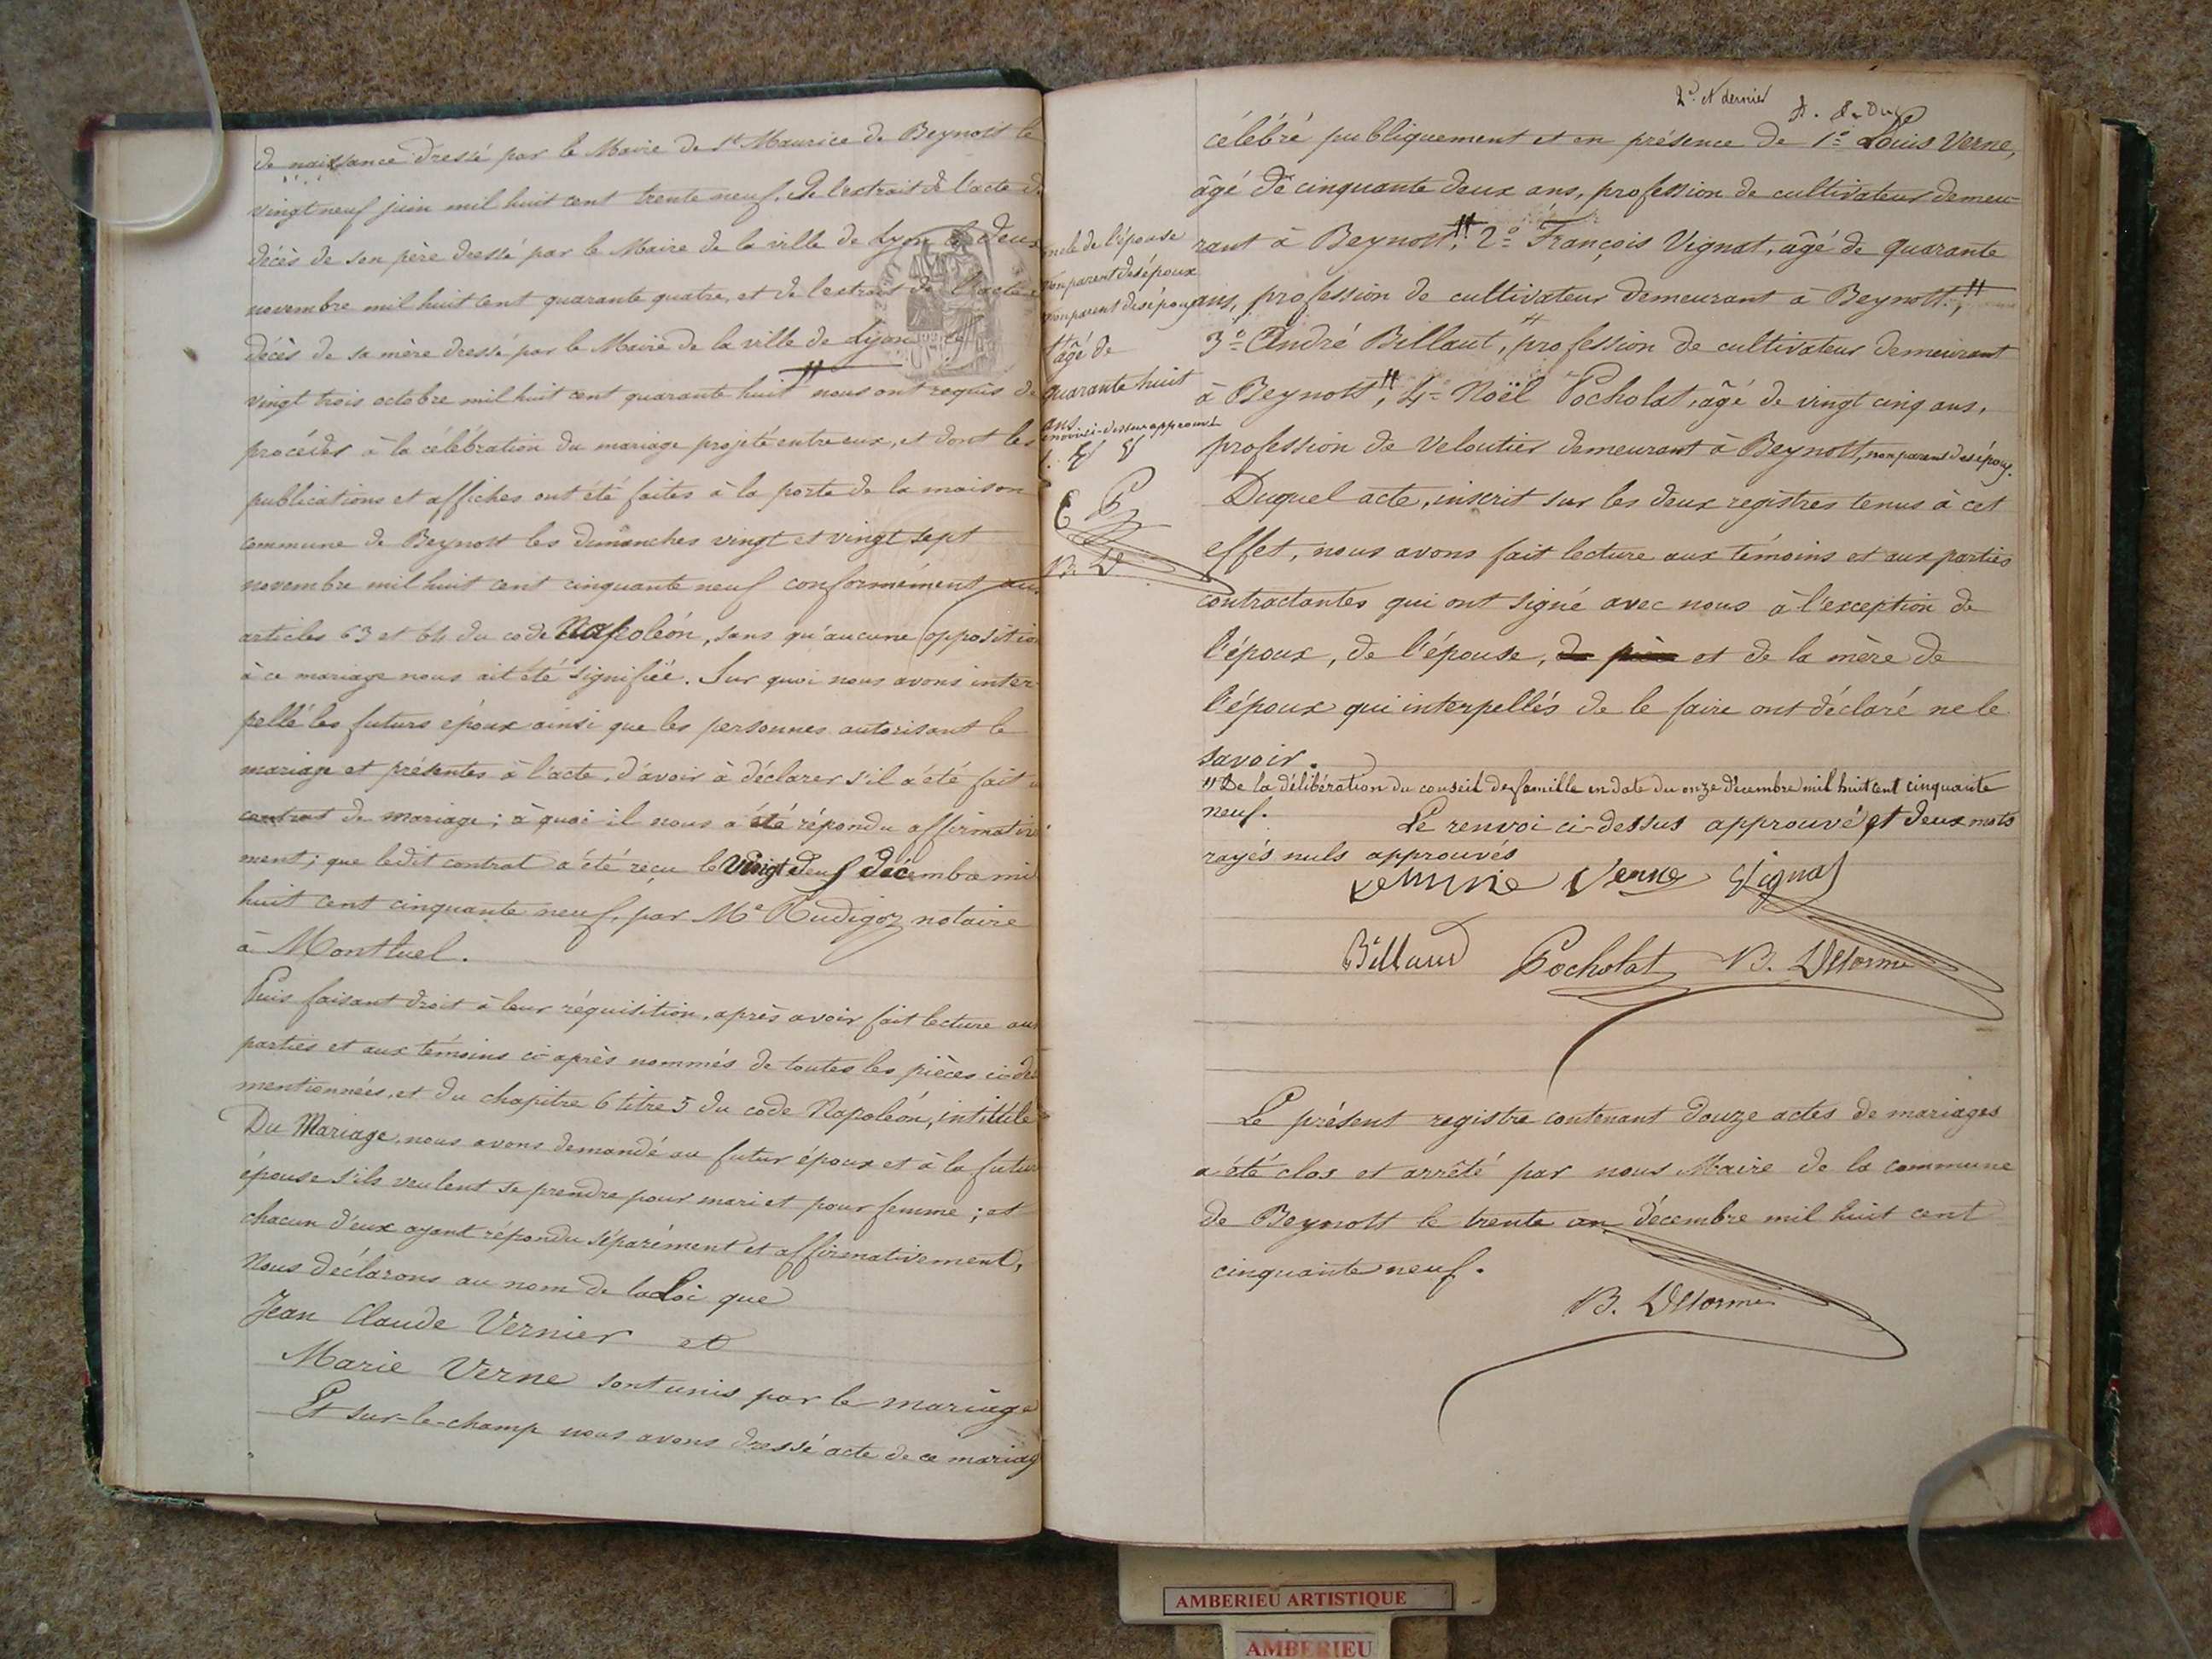 de naissance dressé par le Maire de St Maurice de Beynost le
vingt neuf juin mil huit cent trente neuf, de l'extrait de l'acte de
décès de son père dressé par le Maire de la ville de Lyon le deux
novembre mil huit cent quarante quatre, et de l'extrait de l'acte
décès de sa mère dressé par le Maire de la ville de Lyon le
vingt trois octobre mil huit cent quarante huit " nous ont requis de
procéder à la célébration du mariage projeté entre eux, et dont les
publications et affiches ont été faites à la porte de la maison
commune de Beynost les dimanches vingt et vingt sept
novembre mil huit cent cinquante neuf conformément aux
articles 63 et 64 du code Napoléon, sans qu'aucune opposition
à ce mariage nous ait été signifiée. Sur quoi nous avons inter-
pellé les futurs époux ainsi que les personnes autorisant le
mariage et présentes à l'acte, d'avoir à déclarer s'il a été fait
contrat de mariage ; à quoi il nous a été répondu affirmative
ment ; que ledit contrat a été reçu le vingt décembre mil
huit cent cinquante neuf, par Me Rudigoz notaire
à Montluel.
Puis faisant droit à leur réquisition, après avoir fait lecture aux
parties et aux témoins ci-après nommés de toutes les pièces ci-des
mentionnées, et du chapitre 6 titre 5 du code Napoléon, intitulé
Du Mariage, nous avons demandé au futur époux et à la future
épouse s'ils veulent se prendre pour mari et pour femme ; et
chacun d'eux ayant répondu séparément et affirmativement,
Nous déclarons au nom de la Loi que
Jean Claude Vernier et
Marie Verne sont unis par le mariage
Et sur-le-champ nous avons dressé acte de ce mariag
2e et dernier
célébré publiquement et en présence de 1° Louis Verne,
âgé de cinquante deux ans, profession de cultivateur demeu-
rant à Beynost " ; 2° François Vignat, âgé de quarante
ans, profession de cultivateur demeurant à Beynost, "
3° André Billaut, profession de cultivateur demeurant
à Beynost " ; 4° Noël Pocholat, âgé de vingt cinq ans,
profession de veloutier demeurant à Beynost, non parent des époux.
oncle de l'épouse
non parent des époux
non parent des époux
âgé de
quarante huit
ans
renvoi ci-dessus approuvé
B. D.
Duquel acte, inscrit sur les deux registres tenus à cet
effet, nous avons fait lecture aux témoins et aux parties
contractantes qui ont signé avec nous à l'exception de
l'époux, de l'épouse, du père et de la mère de
l'époux qui interpellés de le faire ont déclaré ne le
savoir.
" De la délibération du conseil de famille en date du onze décembre mil huit cent cinquante
neuf. Le renvoi ci-dessus approuvé et deux mots
rayés nuls approuvés
Verne Vignat
Billaud Pocholat B. Delorme
Le présent registre contenant douze actes de mariages
a été clos et arrêté par nous Maire de la commune
de Beynost le trente un décembre mil huit cent
cinquante neuf.
B. Delorme
AMBERIEU ARTISTIQUE
AMBERIEU